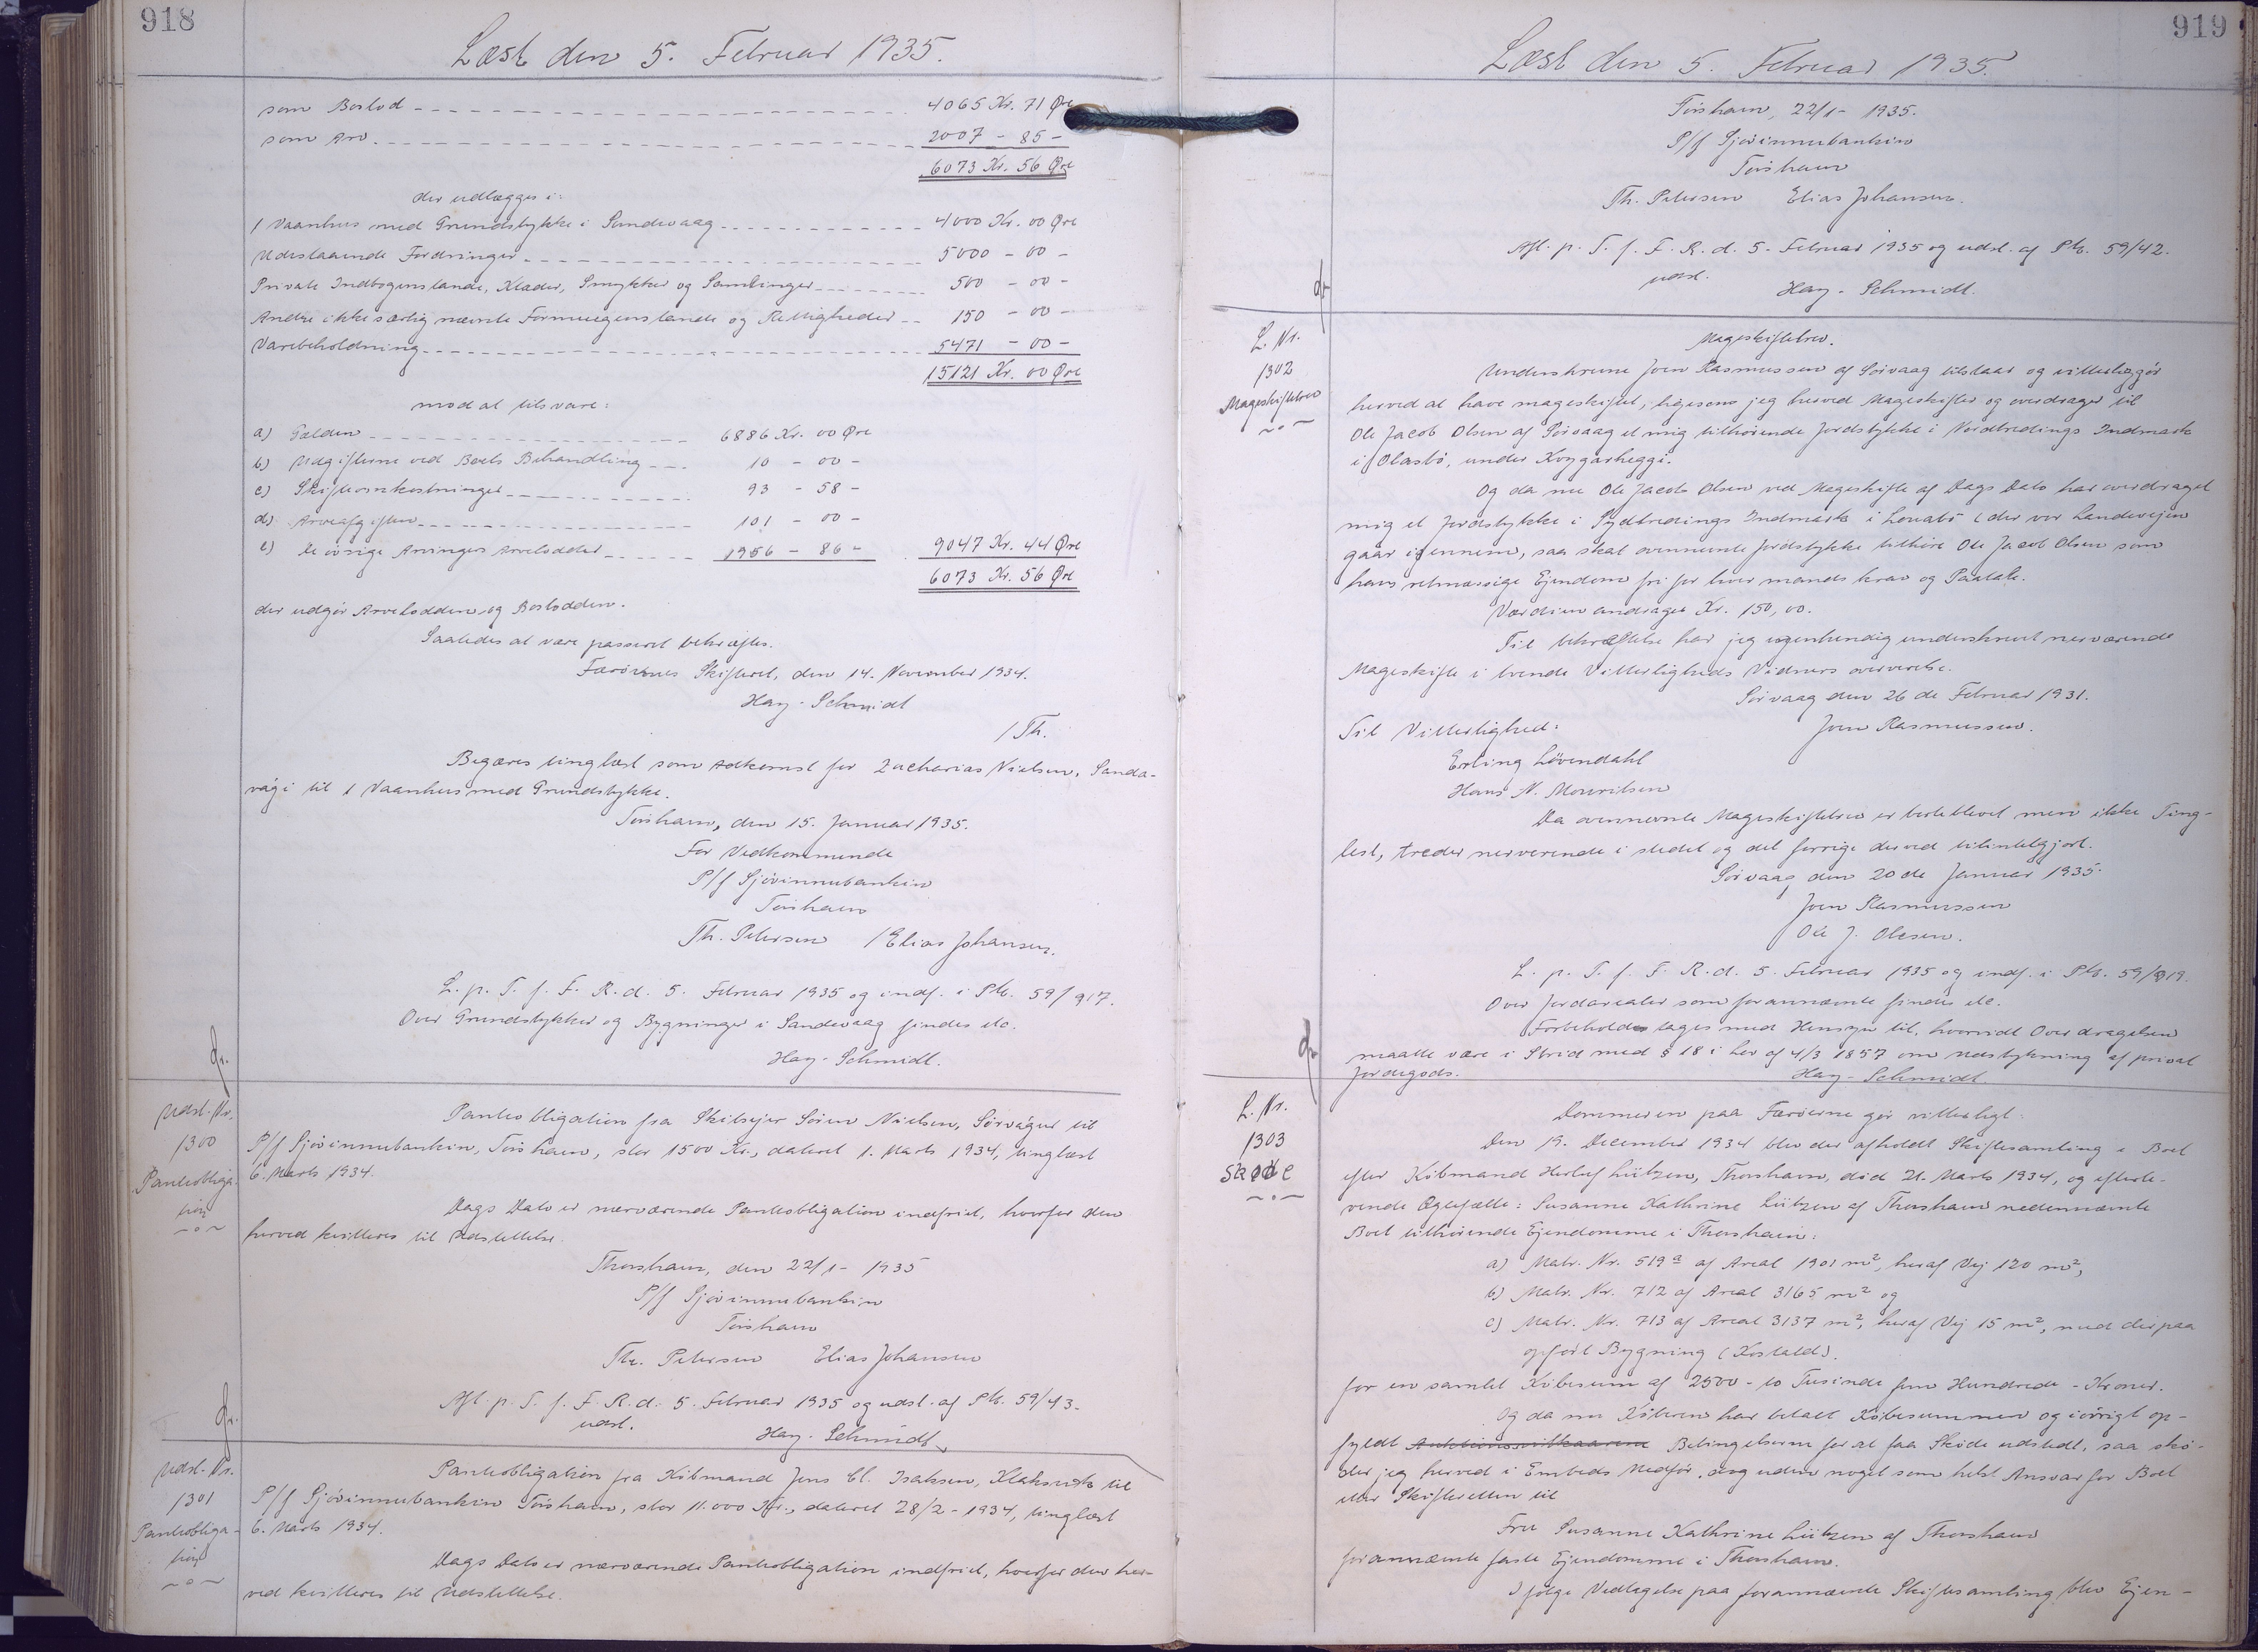 918
Læst den 5. Februar 1935.
som Boslod 4065 Kr. 71 Øre
som Arv 2007 - 85 -
6073 Kr. 56 Øre
der udlægges i:
1 Vaanhus med Grundstykke i Sandevaag 4000 Kr. 00 Øre
Udestaaende Fordringer 5000 - 00 -
Private Indbogenstande, Klæder, Smykker og Samlinger 500 - 00 -
Andre ikke særlig nævnte Formuegenstande og Rettigheder 150 - 00 -
Varebeholdning 5471 - 00 -
15121 Kr. 00 Øre
mod at tilsvare:
a) Gælden 6886 Kr. 00 Øre
b) Udgifterne ved Boets Behandling 10 - 00 -
c) Skifteomkostninger 93 - 58 -
d) Arveafgiften 101 - 00 -
e) De øvrige Arvingers Arvelodder 1956 - 86 - 9047 Kr. 44 Øre
6073 Kr. 56 Øre
der udgør Arvelodden og Boslodden.
Saaledes at være passeret bekræftes.
Færøernes Skifteret, den 14. November 1934.
Hay-Schmidt
/Th.
Begæres tinglæst som Adkomst for Zacharias Nielsen, Sanda-
vági til 1 Vaanhus med Grundstykke.
Tórshavn, den 15. Januar 1935.
For Vedkommende
P/f Sjóvinnubankin
Tórshavn
Th. Petersen / Elias Johansen.
L. p. T. f. F. R. d. 5. Februar 1935 og indf. i Ptb. 59/917.
Over Grundstykker og Bygninger i Sandevaag findes etc.
Hay-Schmidt.
Udsl. Nr.
1300
Pantobliga-
tion
Pantobligation fra Skibsejer Sören Nielsen, Sörvágur til
P/f Sjóvinnubankin, Tórshavn, stor 1500 Kr., dateret 1. Marts 1934, tinglæst
6. Marts 1934.
Dags Dato er nærværende Pantobligation indfriet, hvorfor den
herved kvitteres til Udslettelse.
Thorshavn, den 22/1 - 1935
P/f Sjóvinnubankin
Tórshavn
Th. Petersen Elias Johansen
Afl. p. T. f. F. R. d. 5. Februar 1935 og udsl. af Ptb. 59/43.
udsl.
Hay-Schmidt
Udsl. Nr.
1301
Pantobliga-
tion
Pantobligation fra Købmand Jens Cl. Isaksen, Klaksvik til
P/f Sjóvinnubankin Tórshavn, stor 11.000 Kr., dateret 28/2 - 1934, tinglæst
6. Marts 1934.
Dags Dato er nærværende Pantobligation indfriet, hvorfor den her-
ved kvitteres til Udslettelse.
919
Læst den 5. Februar 1935.
Tórshavn, 22/1 - 1935.
P/f Sjóvinnubankin
Tórshavn
Th. Petersen Elias Johansen.
Afl. p. T. f. F. R. d. 5. Februar 1935 og udsl. af Ptb. 59/42.
udsl.
Hay-Schmidt.
L. Nr.
1302
Mageskiftebrev
Mageskiftebrev.
Underskrevne Joen Rasmussen af Sörvaag tilstaar og vitterliggör
herved at have mageskiftet, ligesom jeg herved Mageskifter og overdrager til
Ole Jacob Olsen af Sörvaag et mig tilhörende Jordstykke i Nordbredings Indmark
i Olasbö, under Kvygarheggi.
Og da nu Ole Jacob Olsen ved Mageskifte af Dags Dato har overdraget
mig et Jordstykke i Sydbredings Indmark i Lovabö (der vor Landevejen
gaar igennem, saa skal ovennevnte Jordstykke tilhöre Ole Jacob Olsen som
hans retmæssige Ejendom fri for hver mands krav og Paatale.
Værdien andrager Kr. 150,00.
Til bekræftelse har jeg egenhendig underskrevet nerværende
Mageskifte i tvende Vitterligheds Vidners oververelse.
Sörvaag den 26 de Februar 1931.
Til Vitterlighed: Joen Rasmussen.
Erling Lövendahl
Hans N. Mouritsen
Da ovennevnte Mageskiftebrev er borteblevet men ikke Ting-
lest, treder nerverende i stedet og det forrige derved tilintetgjort.
Sörvaag den 20 de Januar 1935.
Joen Rasmussen
Ole J. Olesen.
L. p. T. f. F. R. d. 5. Februar 1935 og indf. i Ptb. 59/919.
Over Jordarealer som forannævnte findes etc.
Forbeholdes tages med Hensyn til, hvorvidt Overdragelsen
maatte være i Strid med § 18 i Lov af 4/3 1857 om Udstykning af privat
Jordegods. Hay-Schmidt
L. Nr.
1303
Skøde
Dommeren paa Færöerne gør vitterligt:
Den 19. December 1934 blev der afholdt Skiftesamling i Boet
efter Købmand Herluf Lützen, Thorshavn, død 21. Marts 1934, og efterle-
vende Ægtefælle: Susanne Kathrine Lützen af Thorshavn nedennævnte
Boet tilhørende Ejendomme i Thorshavn:
a) Matr. Nr. 519 a af Areal 1901 m², heraf Vej 120 m²,
b) Matr. Nr. 712 af Areal 3165 m² og
c) Matr. Nr. 713 af Areal 3137 m², heraf Vej 15 m², med derpaa
opført Bygning (Kostald).
for en samlet Købesum af 2500 - to Tusinde fem Hundrede - Kroner.
Og da nu Køberen har betalt Købesummen og iøvrigt op-
fyldt Auktionsvilkaarene Betingelserne for at faa Skøde udstedt, saa skø-
der jeg herved i Embeds Medfør, dog uden noget som helst Ansvar for Boet
eller Skifteretten til
Fru Susanne Kathrine Lützen af Thorshavn
forannævnte faste Ejendomme i Thorshavn.
Ifølge Vedtagelse paa forannævnte Skiftesamling blev Ejen-